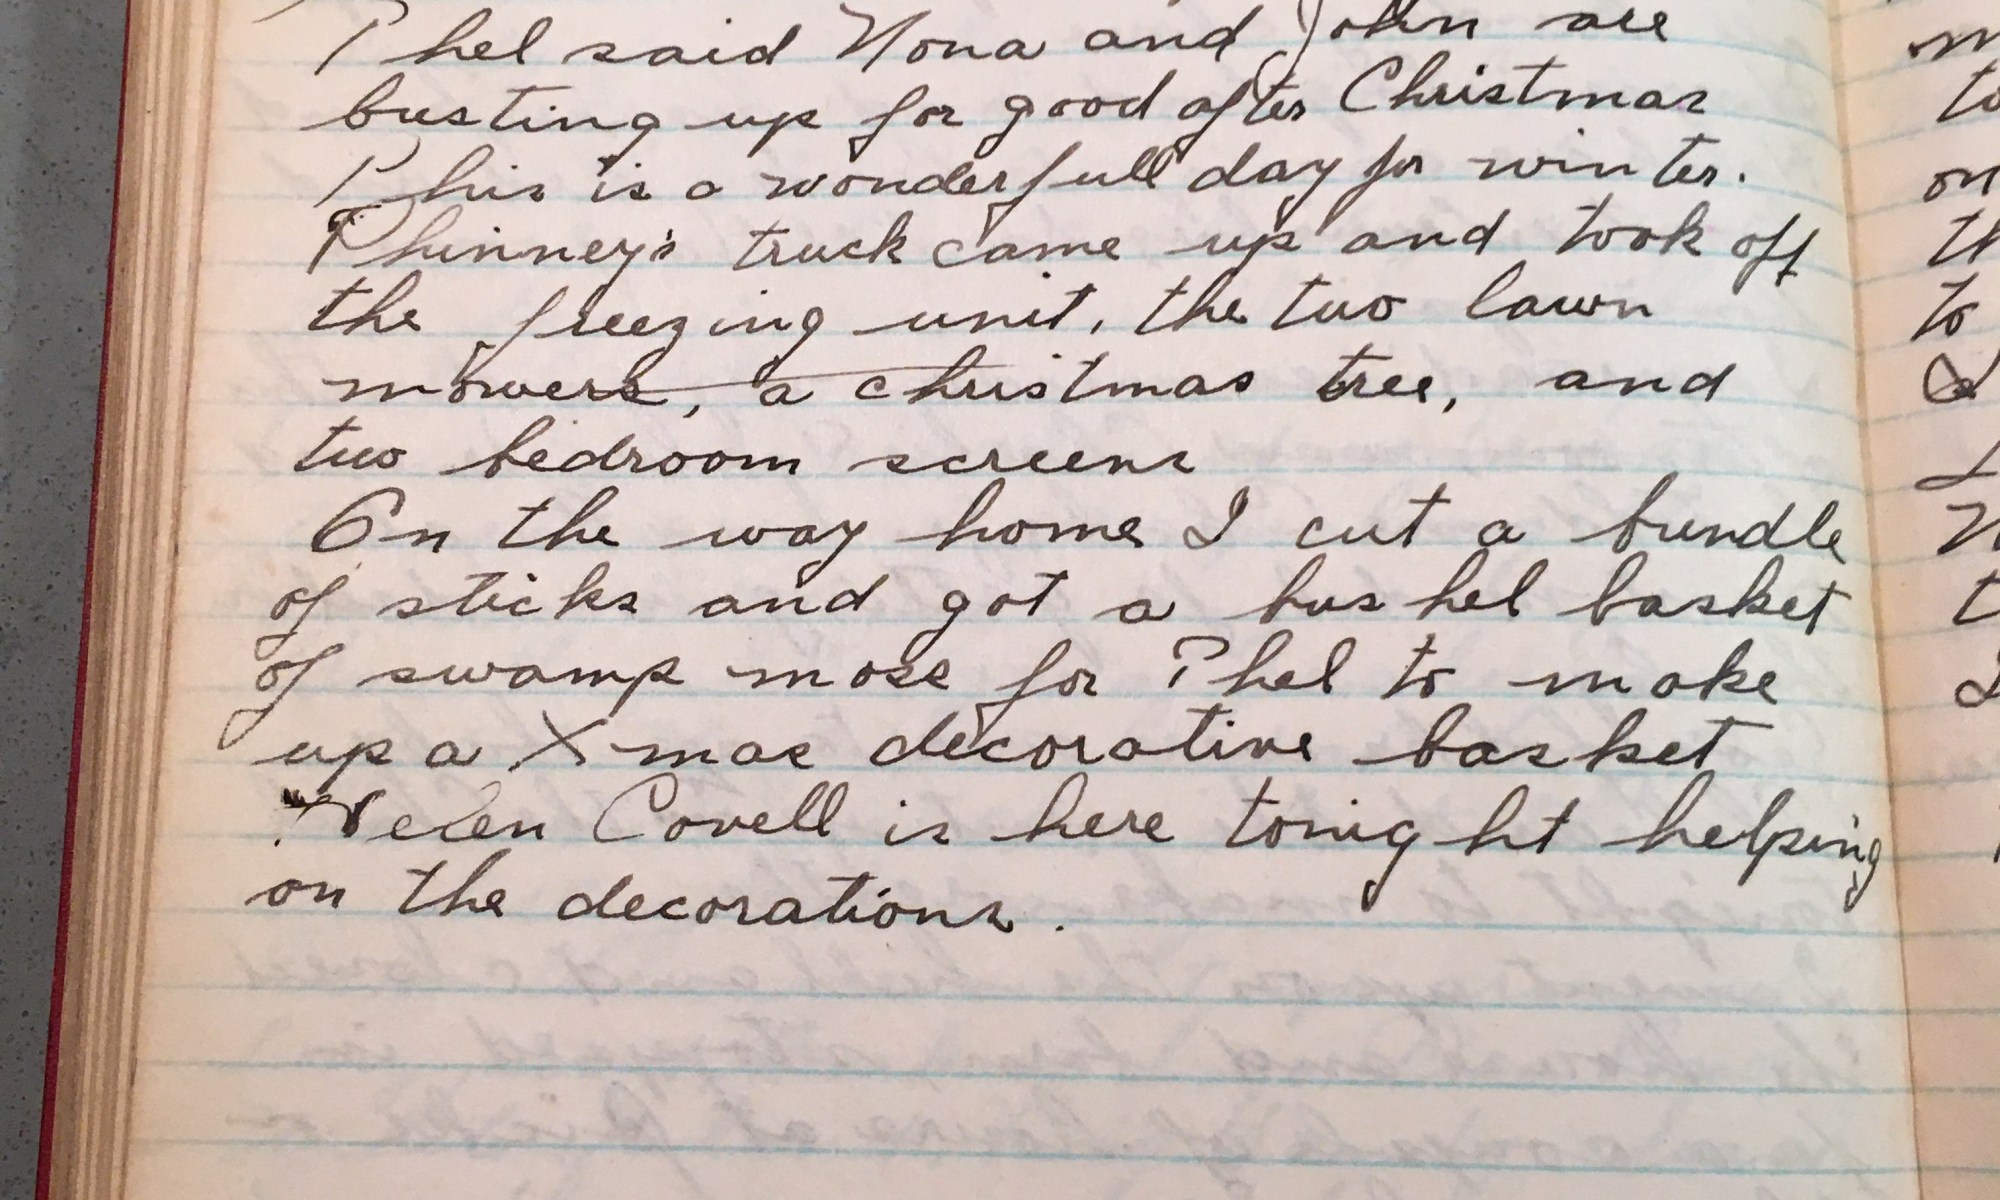 Thel said Nona and John are
busting up for good after Christmas
This is a wonderfull day for winter.
Phinney's truck came up and took off
the freezing unit, the two lawn
mowers, a christmas tree, and
two bedroom screens
On the way home I cut a bundle
of sticks and got a bushel basket
of swamp moss for Thel to make
up a Xmas decorative basket
Helen Covell is here tonight helping
on the decorations.